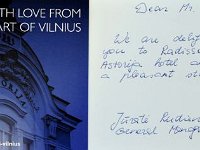 TH LOVE FROM
ART OF VILNIUS
-vilnius
Dear Mr.
We are delig
you to Radisso
Astorija hotel a
a pleasant st
General Manag